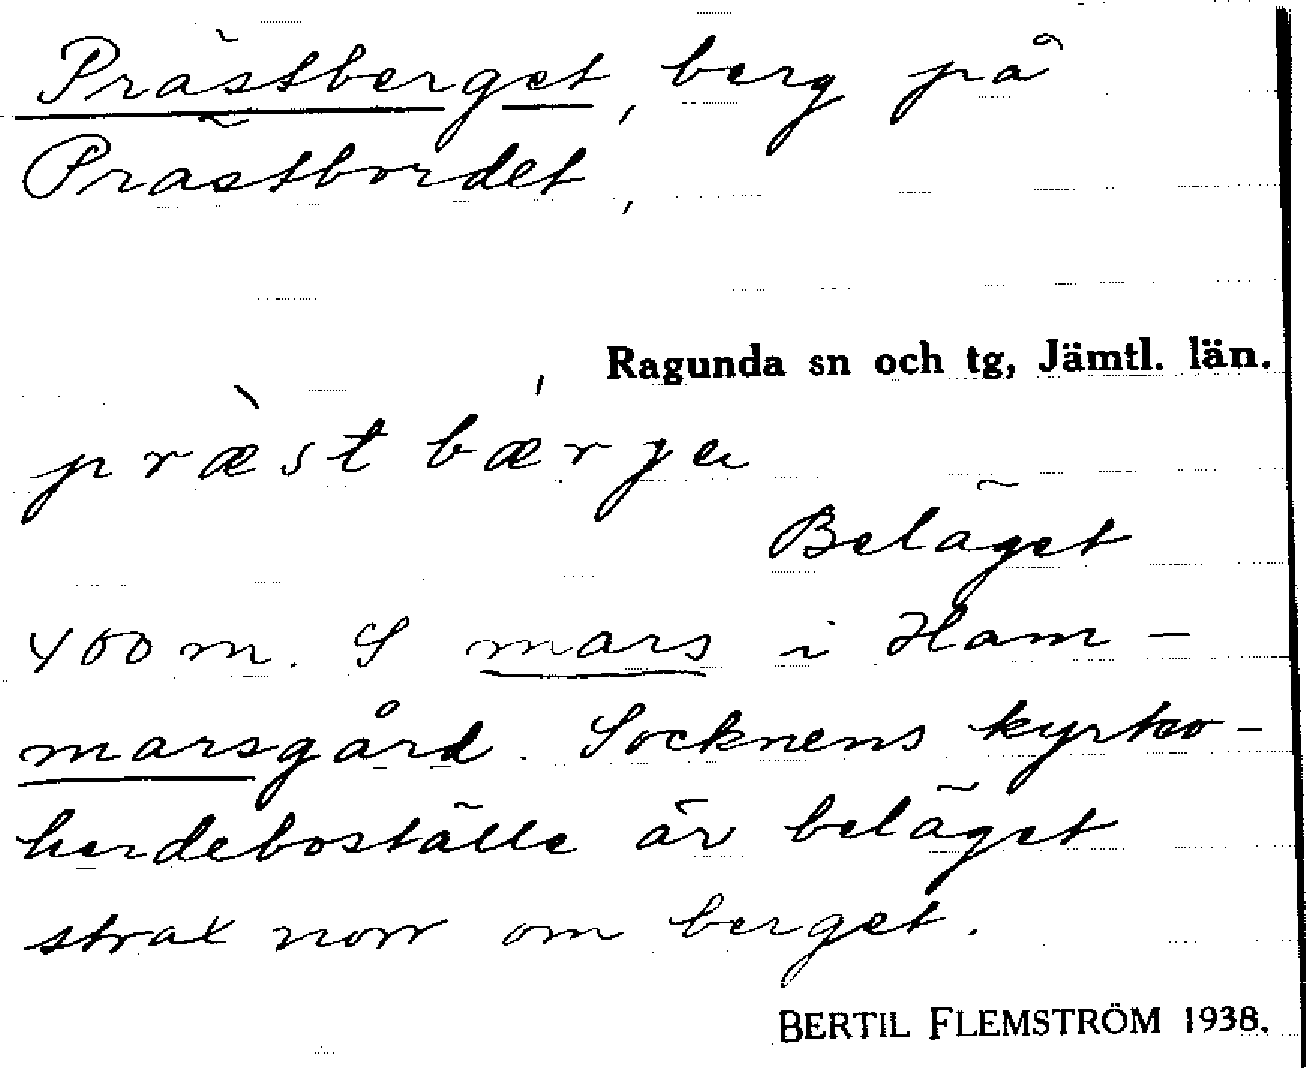 Prästberget, berg på
Prästbordet,
Ragunda sn och tg, Jämtl. län.
præ̀stbǽrȷa
Beläget
400 m. S mars i Ham-
marsgård. Socknens kyrko-
herdeboställe är beläget
strax norr om berget.
BERTIL FLEMSTRÖM 1938.